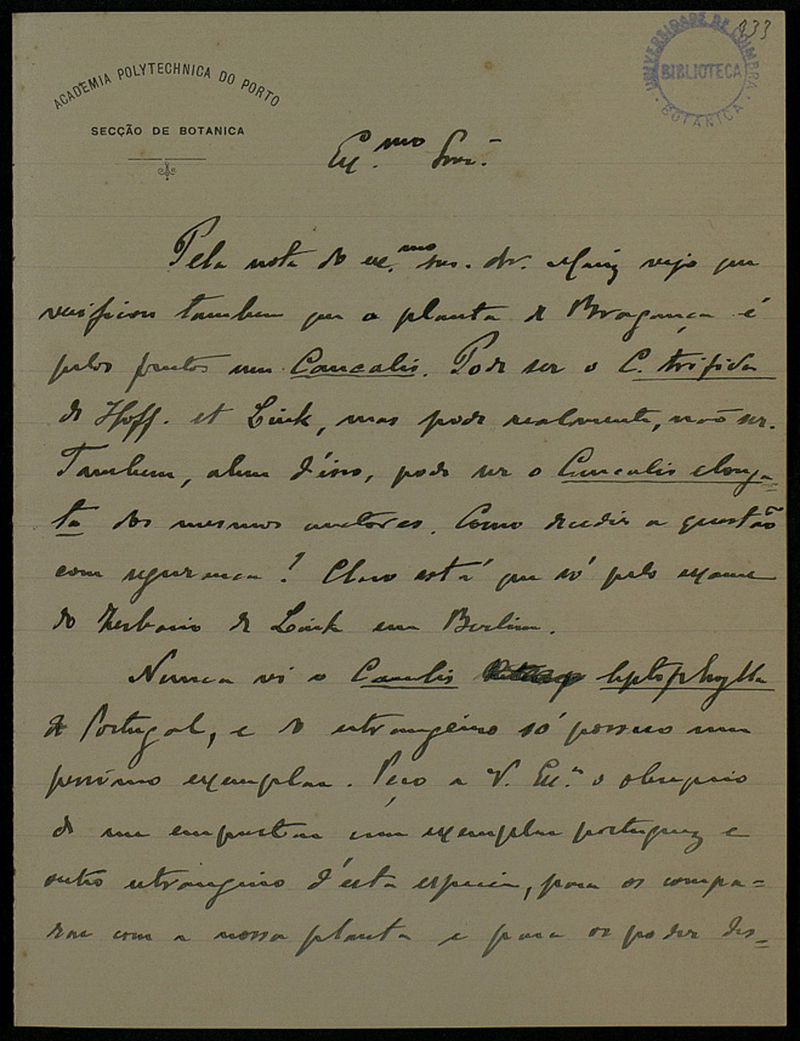 833
UNIVERSIDADE DE COIMBRA
BIBLIOTECA
BOTANICA
ACADEMIA POLYTECHNICA DO PORTO
SECÇÃO DE BOTANICA
Ex.mo Snr.
Pela nota do ex.mo snr. dr. Mariz vejo que
verificou tambem que a planta de Bragança é
pelos fructos um Caucalis. Pode ser o C. trifida
de Hoff. et Link, mas pode realmente, não ser.
Tambem, alem d'isso, pode ser o Caucalis elonga-
ta dos mesmos auctores. Como decidir a questão
com segurança! Claro está que só pelo exame
do herbario de Link em Berlim.
Nunca vi o Caucalis leptophylla
de Portugal, e do estrangeiro só possuo um
pessimo exemplar. Peço a V. Ex.a o obsequio
de me emprestar um exemplar portuguez e
outro estrangeiro d'esta especie, para os compa-
rar com a nossa planta e para os poder des-